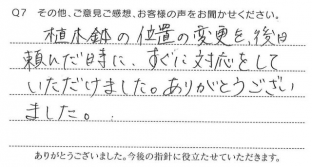 Q7 その他、ご意見ご感想、お客様の声をお聞かせください。
植木鉢の位置の変更を後日
頼んだ時に、すぐに対応をして
いただけました。ありがとうござい
ました。
ありがとうございました。今後の指針に役立たせていただきます。